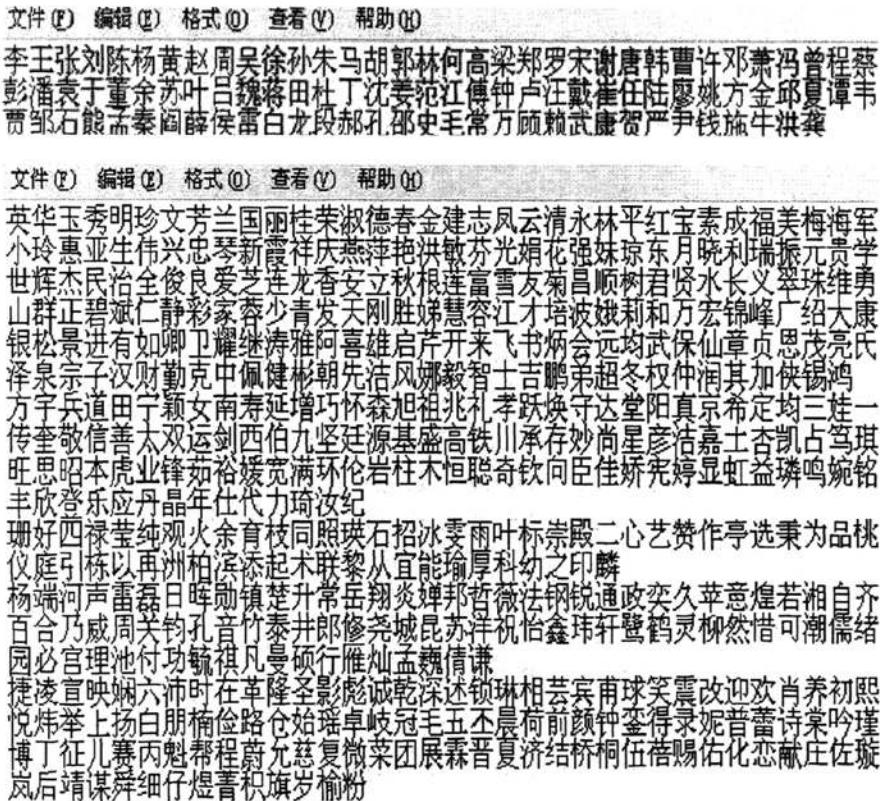 文件(F) 编辑(E) 格式(O) 查看(V) 帮助(H)
李王张刘陈杨黄赵周吴徐孙朱马胡郭林何高梁郑罗宋谢唐韩曹许邓萧冯曾程蔡
彭潘袁于董余苏叶吕魏蒋田杜丁沈姜范江傅钟卢汪戴崔任陆廖姚方金邱夏谭韦
贾邹石熊孟秦阎薛侯雷白龙段郝孔邵史毛常万顾赖武康贺严尹钱施牛洪龚
文件(F) 编辑(E) 格式(O) 查看(V) 帮助(H)
英华玉秀明珍文芳兰国丽桂荣淑德春金建志凤云清永林平红宝素成福美梅海军
小玲惠亚生伟兴忠琴新霞祥庆燕萍艳洪敏芬光娟花强妹琼东月晓利瑞振元贵学
世辉杰民治全俊良爱芝连龙香安立秋根莲富雪友菊昌顺树君贤水长义翠珠维勇
山群正碧斌仁静彩家蓉少青发天刚胜娣慧容江才培波娥莉和万宏锦峰广绍大康
银松景进有如卿卫耀继涛雅阿喜雄启芹开来飞书炳会远均武保仙章贞恩茂亮氏
泽泉宗子汉财勤克中佩健彬朝先洁风娜毅智士吉鹏弟超冬权仲润其加侠锡鸿
方宇兵道田宁颖女南寿延增巧怀森旭祖兆礼孝跃焕守达堂阳真京希定均三娃一
传奎敬信善太双运剑西伯九坚廷源基盛高铁川承存妙尚星彦浩嘉士杏凯占笃琪
旺思昭本虎业锋茹裕媛宽满环伦岩柱木恒聪奇钦向臣佳娇宪婷显虹益璘鸣婉铭
丰欣登乐应丹晶年仕代力琦汝纪
珊好四禄莹纯观火余育枝同照瑛石招冰雯雨叶标崇殿二心艺赞作亭选秉为品桃
仪庭引栋以再洲柏滨添起术联黎从宜能瑜厚科幼之印麟
杨端河声雷磊日晖勋镇楚升常岳翔炎婵邦哲薇法钢锐通政奕久苹意煌若湘自齐
百合乃威周关钧孔音竹泰井郎修尧城昆苏洋祝怡鑫玮轩鹭鹤灵柳然惜可潮儒绪
园必宫理池付功毓祺凡曼硕行雁灿孟巍倩谦
捷凌宣映娴六沛时在革隆圣影彪诚乾深述锁琳相芸宾甫球笑震改迎欢肖养初熙
悦炜举上扬白朋楠俭路仓始瑶卓岐冠毛五丕晨荷前颜钟銮得录妮普蕾诗棠吟瑾
博丁征儿赛丙魁帮程蔚允慈复微菜团展霖晋夏济结桥桐伍蓓赐佑化恋献庄佐璇
岚后靖谋舜细仔煜菁积旗岁榆粉